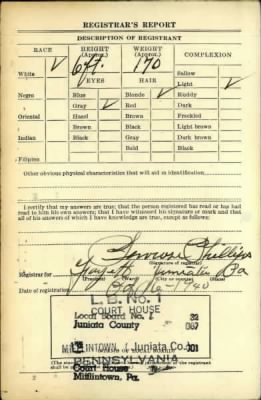 REGISTRAR'S REPORT
DESCRIPTION OF REGISTRANT
RACE HEIGHT (Approx.) WEIGHT (Approx.) COMPLEXION
White ✓ 6 ft. 170 Sallow
EYES HAIR Light ✓
Negro Blue Blonde ✓ Ruddy
Gray ✓ Red Dark
Oriental Hazel Brown Freckled
Brown Black Light brown
Indian Black Gray Dark brown
Bald Black
Filipino
Other obvious physical characteristics that will aid in identification
I certify that my answers are true; that the person registered has read or has had
read to him his own answers; that I have witnessed his signature or mark and that
all of his answers of which I have knowledge are true, except as follows:
Phillips
(Signature of registrar)
Registrar for Fayette Juniata Pa
Date of registration 1940
L.B. No. 1
COURT HOUSE
Local Board No. 1 32
Juniata County 067
MIFFLINTOWN, (Juniata Co.) 001
PENNSYLVANIA
Court House
Mifflintown, Pa.